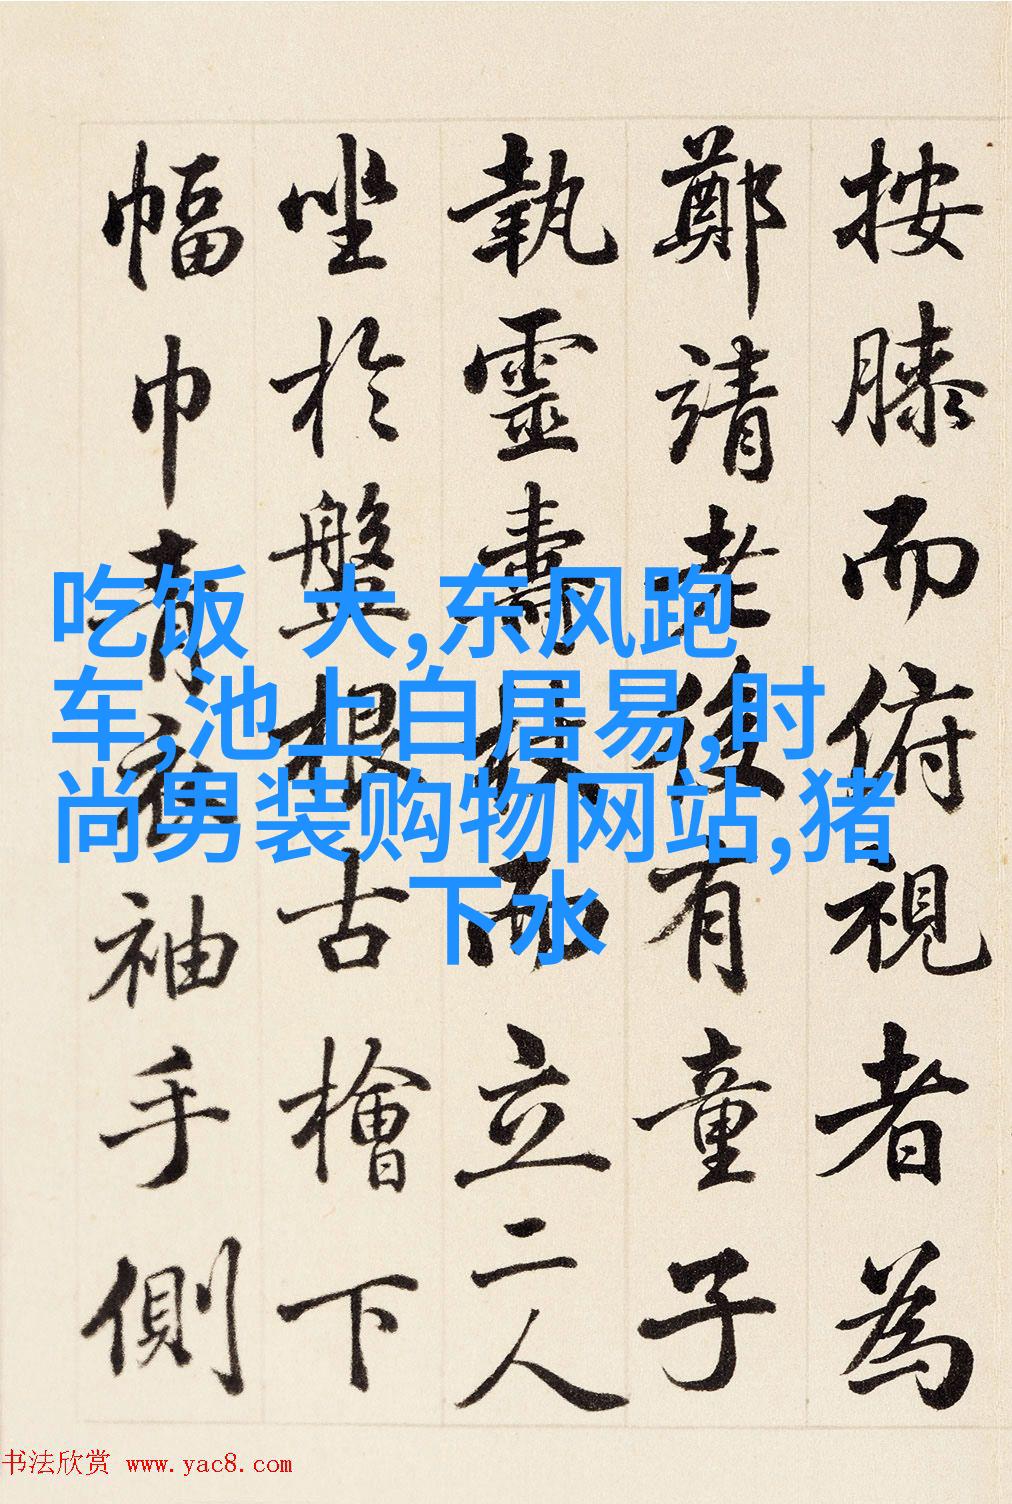 按膝而俯視者為
鄭靖老後有童子
執靈壽杖而立二人
坐於盤根古檜下
幅巾青衣袖手側
吃饭 大,东风跑
车,池上白居易,时
尚男装购物网站,猪
下水
书法欣赏 www.yac8.com